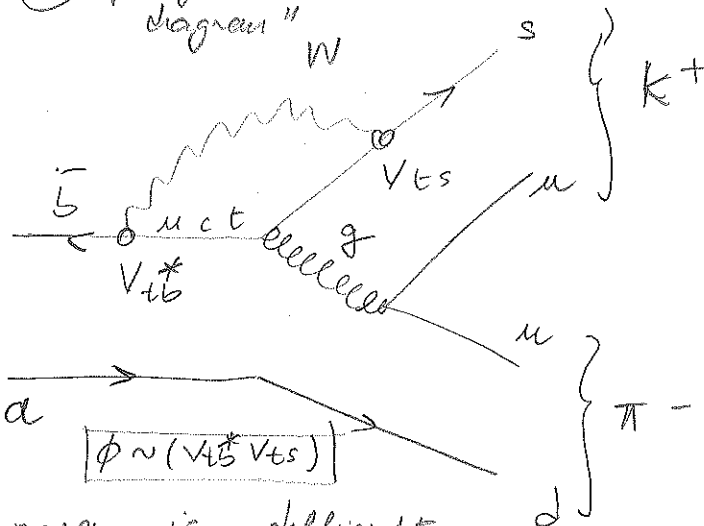 diagram"
W
s
K+
Vts
b̄
u c t
g
u
Vtb*
u
d
π -
ϕ ~ (Vtb* Vts)
d
is different